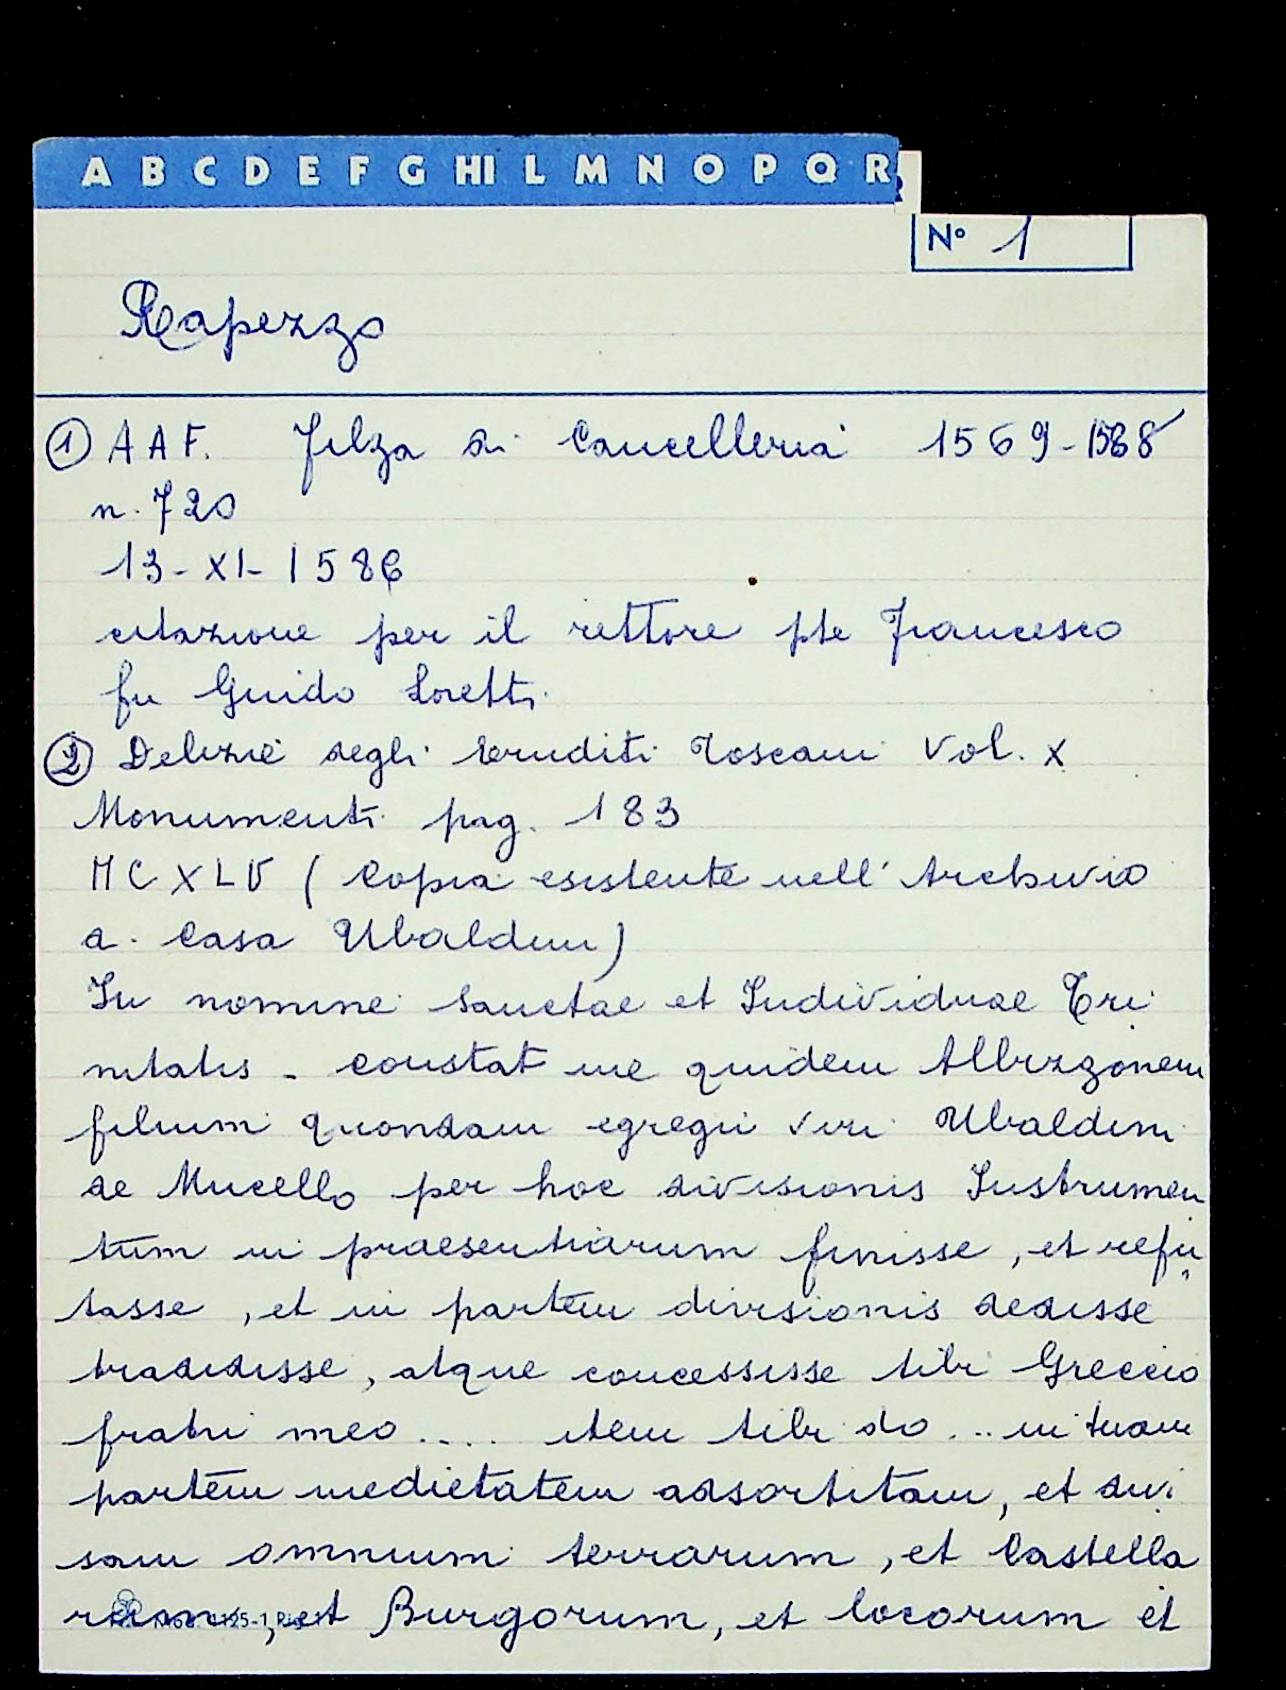 A B C D E F G HI L M N O P Q R
N° 1
Rapezzo
① A A F. Filza di Cancelleria 1569-1588
n. 720
13-XI-1586
citazione per il rettore pte Francesco
fu Guido Loretti
② Delizie degli Eruditi Toscani Vol. X
Monumenti pag. 183
MCXLV (Copia esistente nell' Archivio
a. Casa Ubaldini)
In nomine Sanctae et Individuae Tri
nitatis - constat me quidem Albizzonem
filium quondam egregii viri Ubaldini
de Mucello per hoc divisionis Instrumen
tum in praesentiarum finisse, et refu
tasse, et in partem divisionis dedisse
tradidisse, atque concessisse tibi Greccio
fratri meo .... item tibi do ... in tuam
partem medietatem adsortitam, et divi
sam omnium terrarum, et Castella
rum, et Burgorum, et locorum et